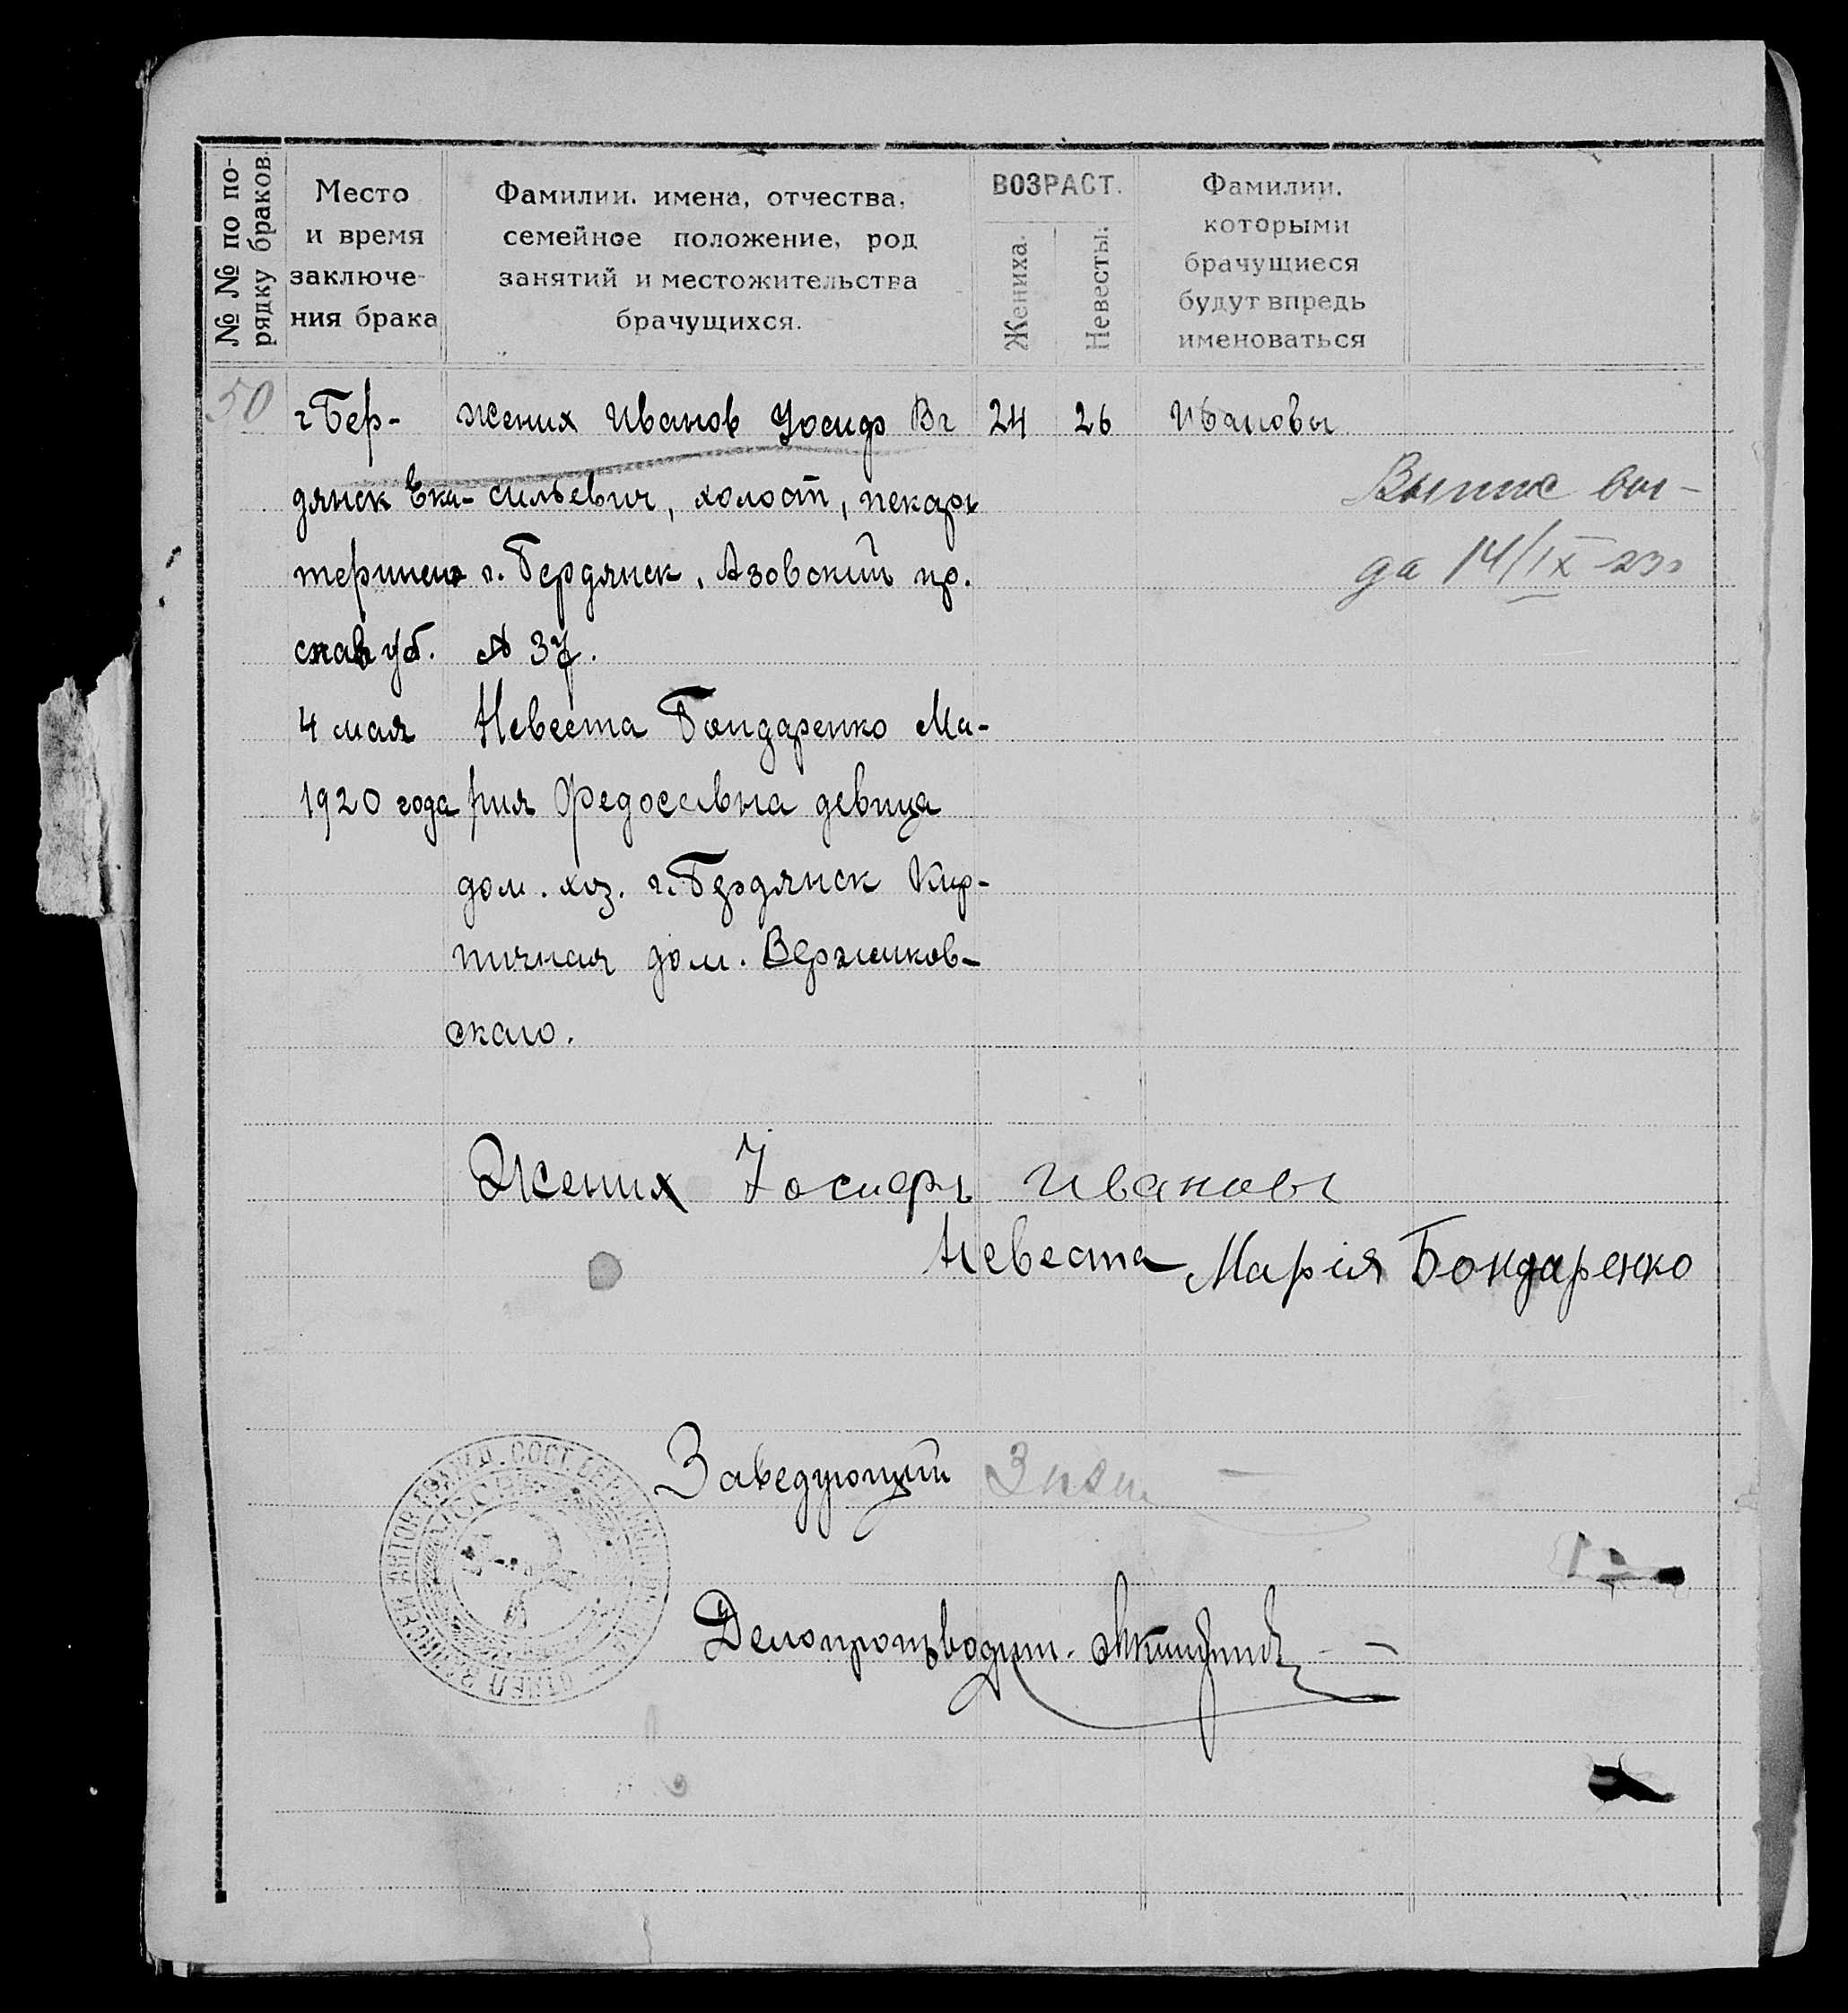 № № по по-
рядку браков.
Место
и время
заключе-
ния брака
Фамилии, имена, отчества,
семейное положение, род
занятий и местожительства
брачущихся.
ВОЗРАСТ.
Жениха.
Невесты.
Фамилии,
которыми
брачущиеся
будут впредь
именоваться
50
г Бер-
дянск Ека-
теринно
слав уб.
4 мая
1920 года
жених Иванов Иосиф Ва
сильевич, холост, пекарь
г. Бердянск, Азовский пр.
№ 37.
Невеста Бондаренко Ма-
рия Федосеевна девица
дом. хоз. г. Бердянск Кир-
пичная дом. Вержиков-
скаго.
24
26
Ивановы
Выпис вы-
да 14/IX 23г
Жених Иосифъ Ивановъ
Невеста Марія Бондаренко
Заведующий
Делопроизводит.